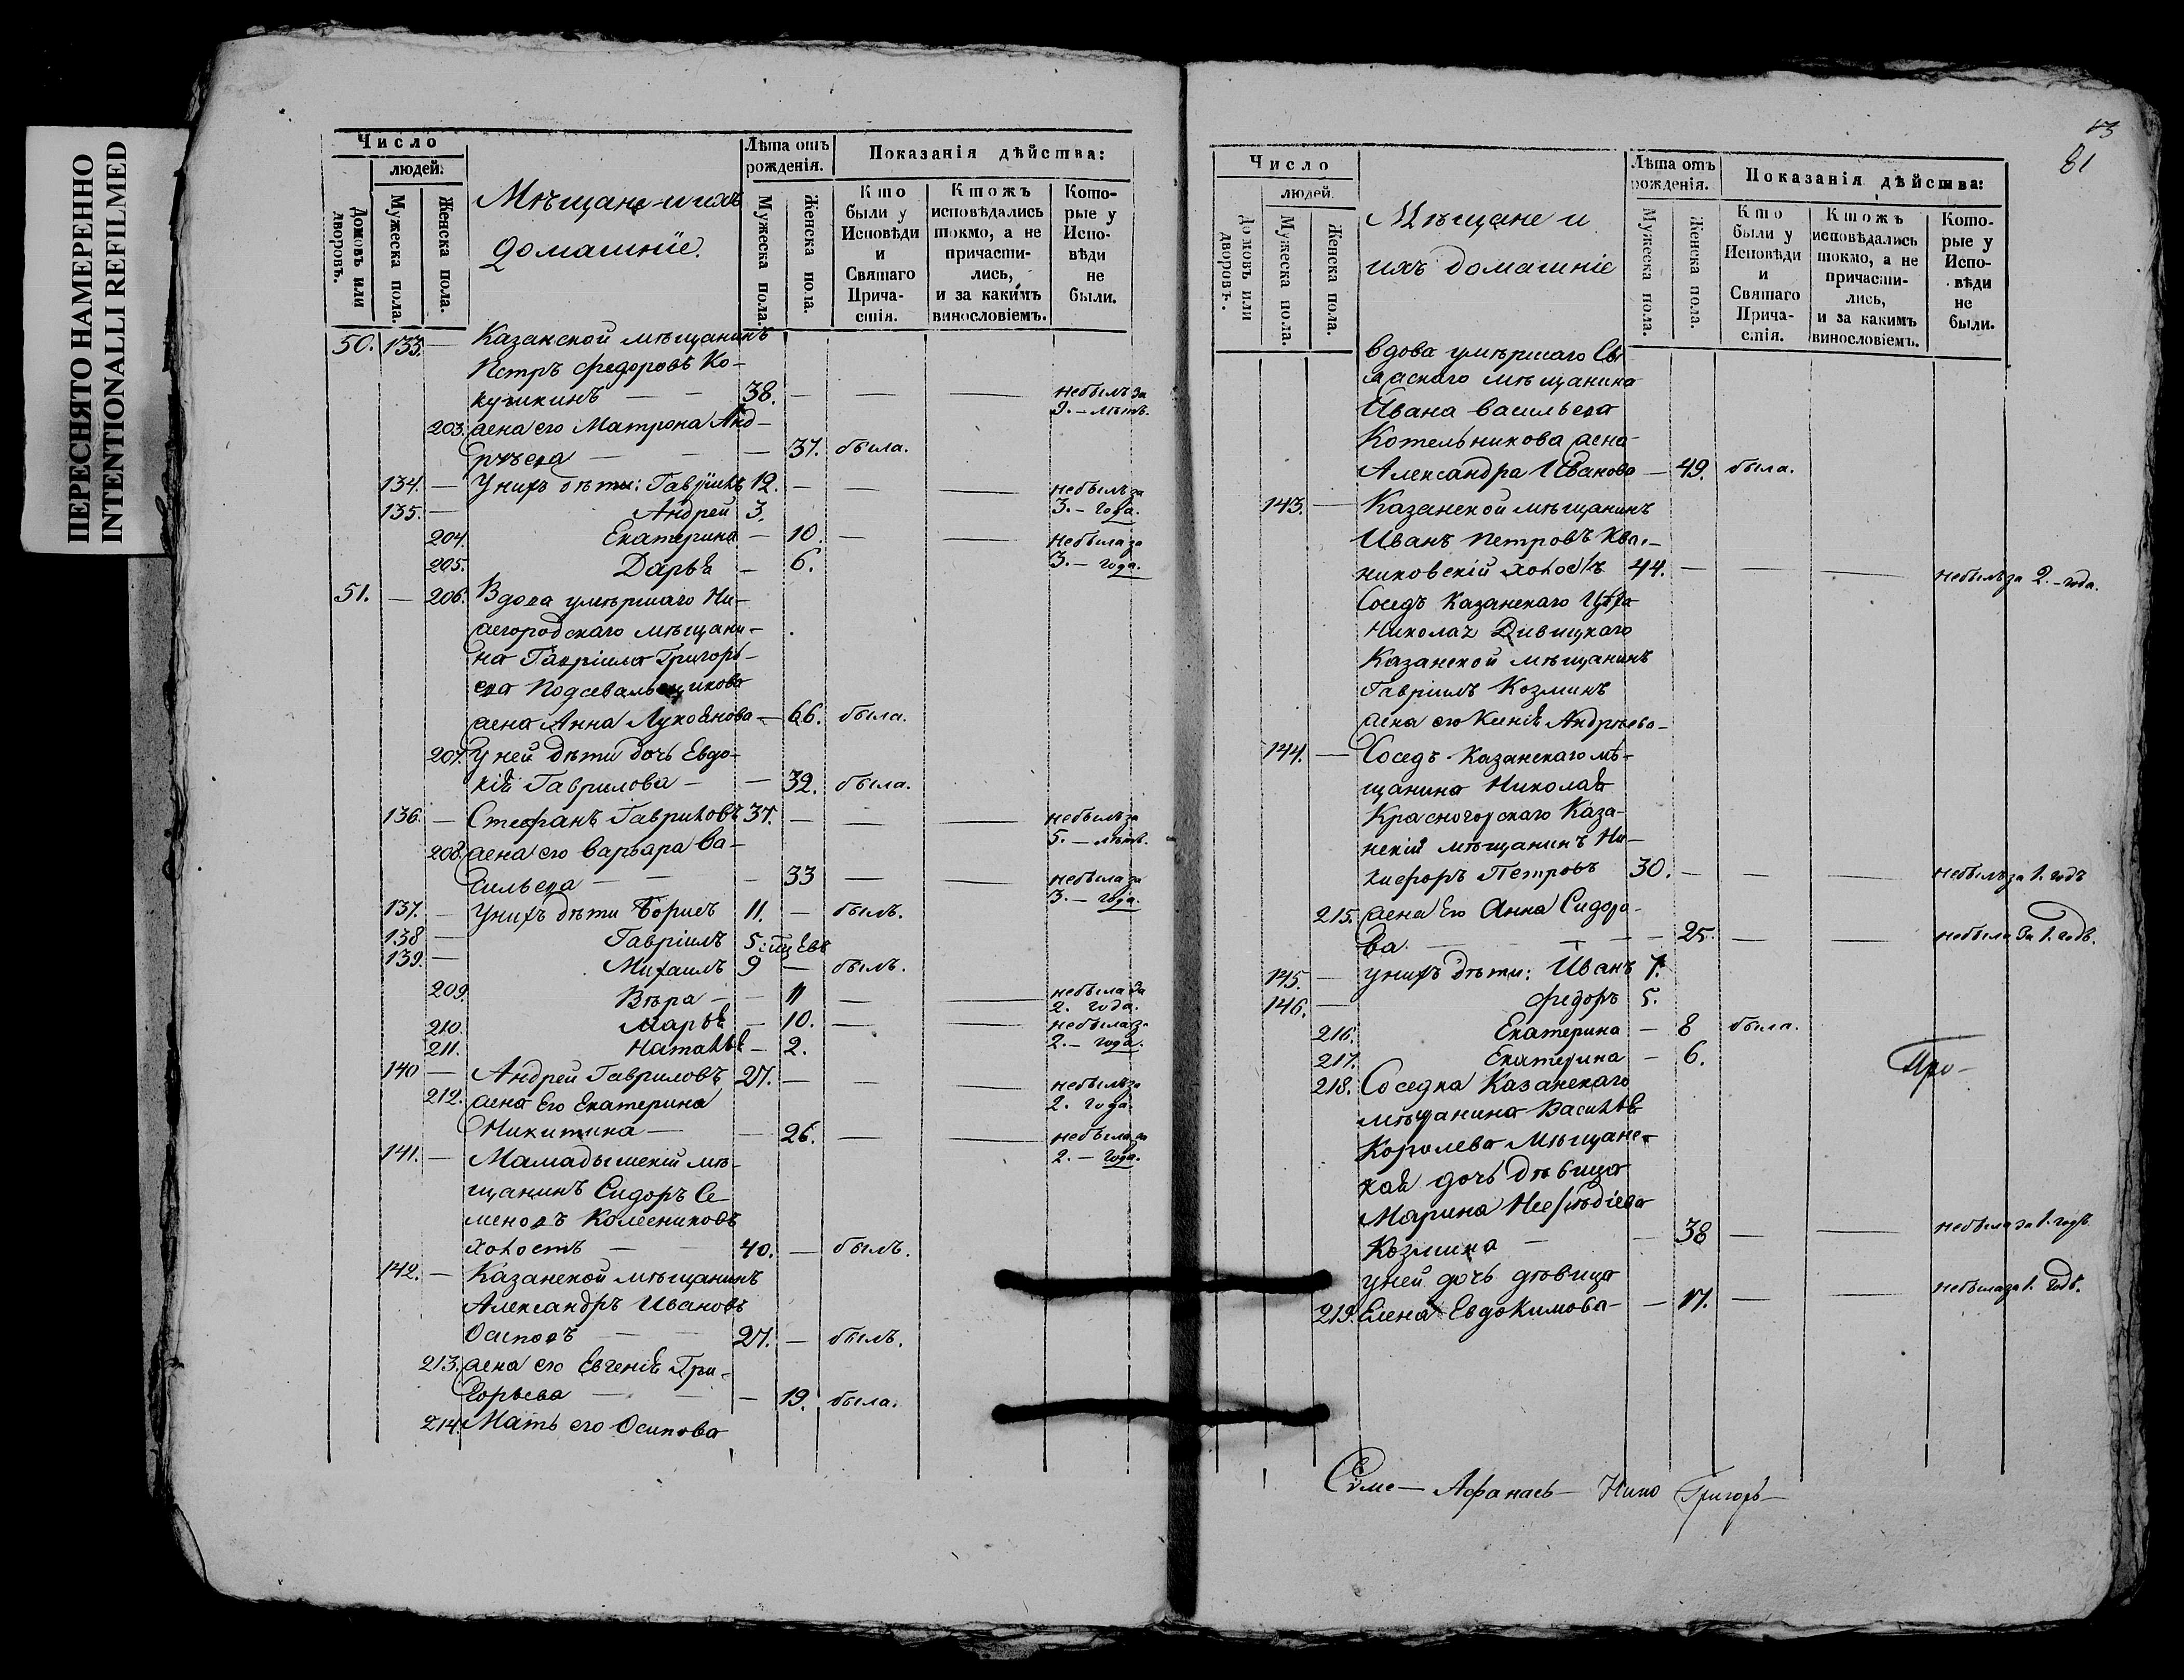 ПЕРЕСНЯТО НАМЕРЕННО
INTENTIONALLI REFILMED
Число
людей.
Домовъ или дворовъ.
Мужеска пола.
Женска пола.
Мѣщане и ихъ
домашніе.
Лѣта отъ рожденія.
Мужеска пола.
Женска пола.
Показанія дѣйства:
Кто были у Исповѣди и Святаго Причастія.
Ктожъ исповѣдались токмо, а не причастились, и за какимъ винословіемъ.
Которые у Исповѣди не были.
50. 133. — Казанской мѣщанинъ
Петръ Федоровъ Ко-
кушкинъ — — 38. — — — небылъ за
9. — лѣтъ.
203. жена его Матрона Анд-
рѣева — — — 37. была.
134. — У нихъ дѣти: Гавріилъ 12. — — — небылъ за
135. — Андрей 3. 3. — года.
204. Екатерина — 10. — — небыла за
205. Дарья — 6. 3. — года.
51. — 206. Вдова умѣршаго Ни-
жегородскаго мѣщани-
на Гавріила Григорь-
ева
жена Анна Лукоянова — 66. была.
207. У ней дѣти дочь Евдо-
кія Гаврилова — — 32. была.
136. — Стефанъ Гавриловъ 37. — — — небылъ за
5. — лѣтъ.
208. жена его Варвара Ва-
сильева — — — 33 — — небыла за
3. — года.
137. — У нихъ дѣти Борисъ 11. — былъ.
138 — Гавріилъ 5:
139. — Михаилъ 9 — былъ.
209. Вѣра — — 11 — — небыла за
2. года.
210. Марья — 10. — — небыла за
211. Наталья — 2. 2. — года.
140 — Андрей Гавриловъ 27. — — — небылъ за
2. года.
212. жена Его Екатерина
Никитина — — 26. — — небыла за
2. — года.
141. — Мамадышскій мѣ-
щанинъ Сидоръ Се-
меновъ Колесниковъ
холостъ — — 40. — былъ.
142. — Казанской мѣщанинъ
Александръ Ивановъ
Осиповъ — — 27. — былъ.
213. жена его Евгенія Гри-
горьева — — — 19. была.
214. Мать его Осипова
81
Число
людей.
Домовъ или дворовъ.
Мужеска пола.
Женска пола.
Мѣщане и
ихъ домашніе
Лѣта отъ рожденія.
Мужеска пола.
Женска пола.
Показанія дѣйства:
Кто были у Исповѣди и Святаго Причастія.
Ктожъ исповѣдались токмо, а не причастились, и за какимъ винословіемъ.
Которые у Исповѣди не были.
вдова умѣршаго Сви
яжскаго мѣщанина
Ивана Васильева
Котельникова жена
Александра Иванова — 49. была.
143. — Казанской мѣщанинъ
Иванъ Петровъ
холостъ 44. — — — небылъ за 2. — года.
Соседъ Казанскаго
Николая
Казанской мѣщанинъ
Гавріилъ Козминъ
жена его Ксенія Андрѣева —
144. — Соседъ Казанскаго мѣ-
щанина Николая
Красногорскаго Каза-
нскій мѣщанинъ Ни-
кифоръ Петровъ 30. — — — небылъ за 1. годъ
215. жена Его Анна Сидоро-
ва — — — 25. — — небыла за 1. годъ.
145. — У нихъ дѣти: Иванъ 7.
146. — Федоръ 5.
216. Екатерина — 8 была.
217. Екатерина — 6.
218. Соседка Казанскаго
мѣщанина Василья
Королева Мѣщанс-
кая дочь дѣвица
Марина
Козмина — — 38 — — небыла за 1. годъ
У ней дочь дѣвица
219. Елена Евдокимова — — 17. — — небыла за 1. годъ.
Афанась — Григорь —